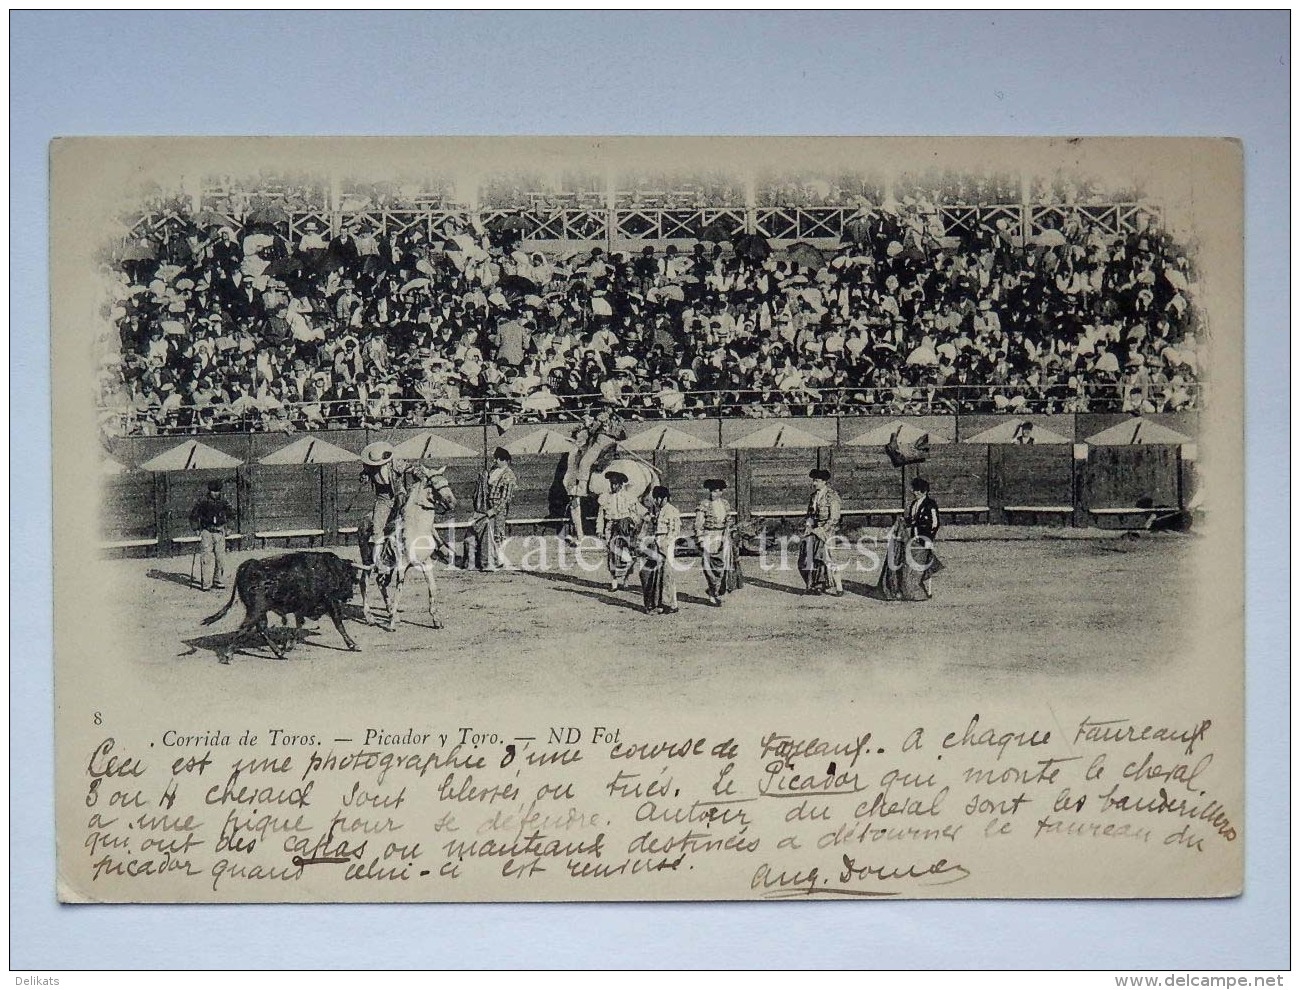 delikatessen trieste
8
Corrida de Toros. — Picador y Toro. — ND Fot
Ceci est une photographie d'une course de taureaux. A chaque taureaux
3 ou 4 chevaux sont blessés ou tués. Le Picador qui monte le cheval
a une pique pour se défendre. Autour du cheval sont les banderilleros
qui ont des capas ou manteaux destinées a détourner le taureau du
picador quand celui-ci est renversé.
Aug.
Delikats
www.delcampe.net